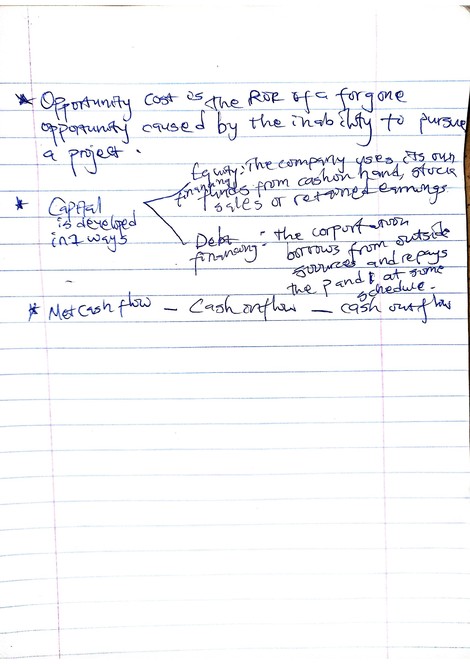 * Opportunity cost is the ROR of a forgone
opportunity caused by the inability to pursue
a project.
* Capital
is developed
in 2 ways
Equity financing: The company uses its own
funds from cash on hand, stock
sales or retained earnings
Debt financing: the corportation
borrows from outside
sources and repays
the P and I at some
schedule.
* Net cash flow - Cash inflow - cash outflow